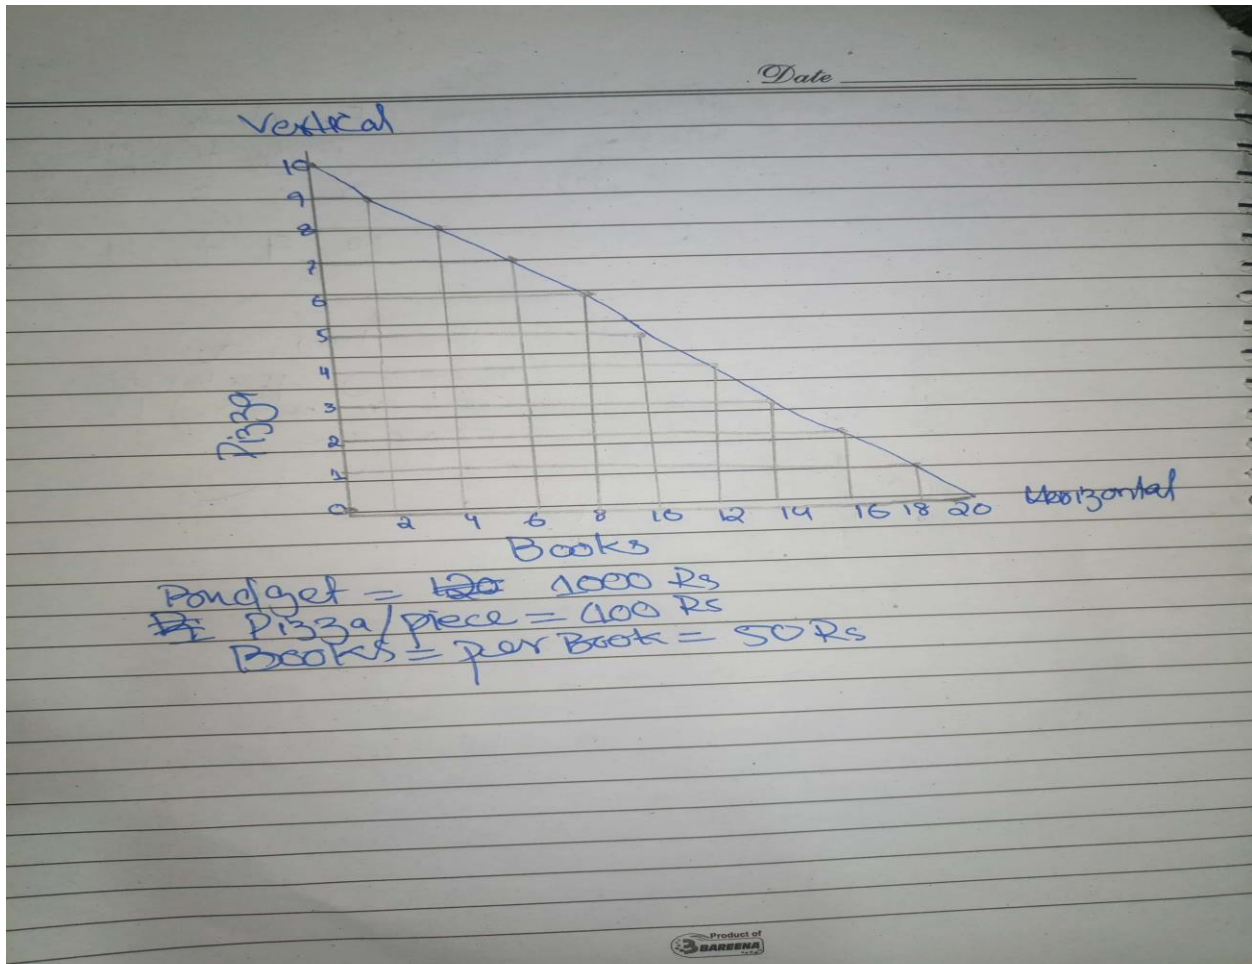 Date
Vertical
10
9
8
7
6
5
4
3
2
1
0
Pizza
2 4 6 8 10 12 14 16 18 20 Horizontal
Books
= 1000 Rs
Pizza/piece = 100 Rs
Books = per Book = 50 Rs
Product of
BAREENA